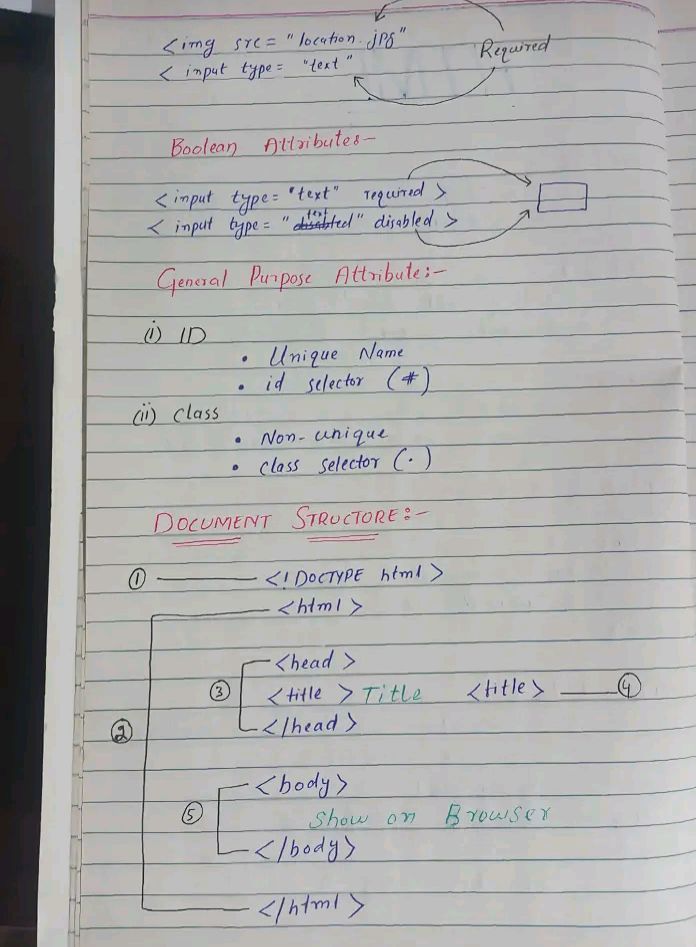 <img src = "location.jpg"
Required
< input type = "text"
Boolean Attributes:-
<input type = "text" required >
< input type = "text" disabled >
General Purpose Attribute:-
(i) ID
• Unique Name
• id selector (#)
(ii) Class
• Non-unique
• class selector (.)
DOCUMENT STRUCTORE:-
① <! DOCTYPE html>
<html>
<head>
③ <title > Title <title> ④
</head>
②
<body>
⑤ Show on Browser
</body>
</html>